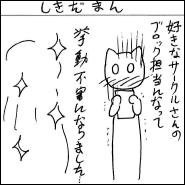 しきぢまん
好きなサークルさんの
ブロック担当んなって
挙動不審んなりました…